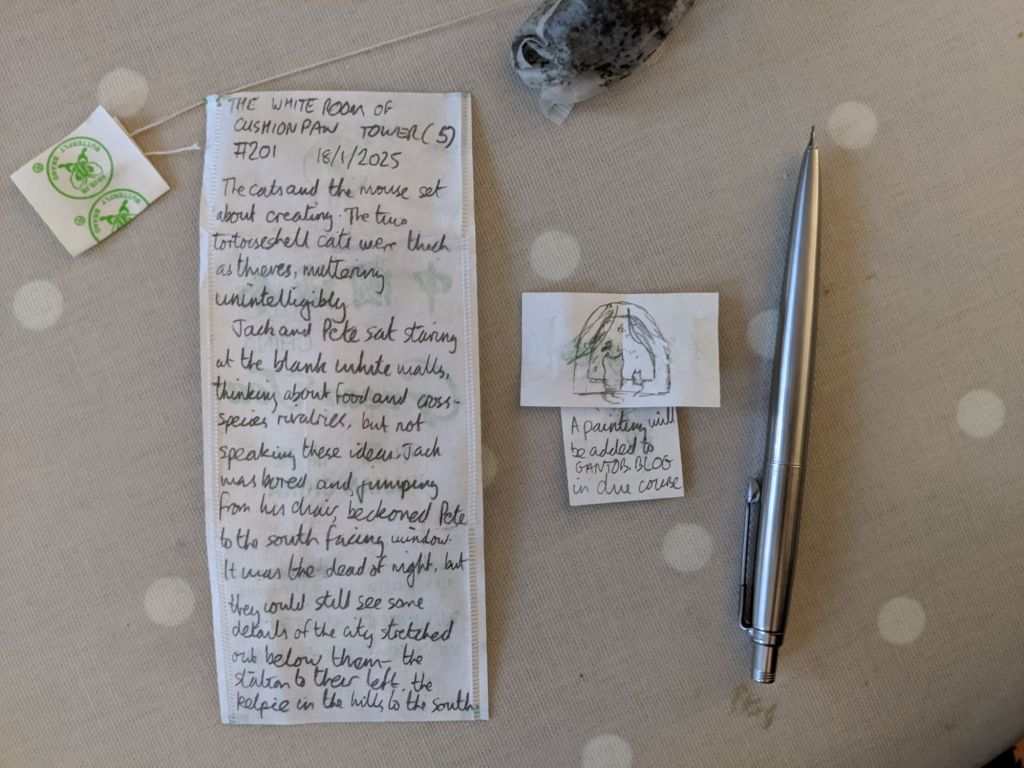 THE WHITE ROOM OF
CUSHIONPAW TOWER (5)
#201 18/1/2025
The cats and the mouse set
about creating. The two
tortoiseshell cats were thick
as thieves, muttering
unintelligibly
Jack and Pete sat staring
at the blank white walls,
thinking about food and cross-
species rivalries, but not
speaking these ideas. Jack
was bored, and, jumping
from his chair, beckoned Pete
to the south facing window.
It was the dead of night, but
they could still see some
details of the city stretched
out below them - the
station to their left, the
kelpie in the hills to the south
A painting will
be added to
GANTOB.BLOG
in due course
BUTTERFLY BRAND
BUTTERFLY
中国